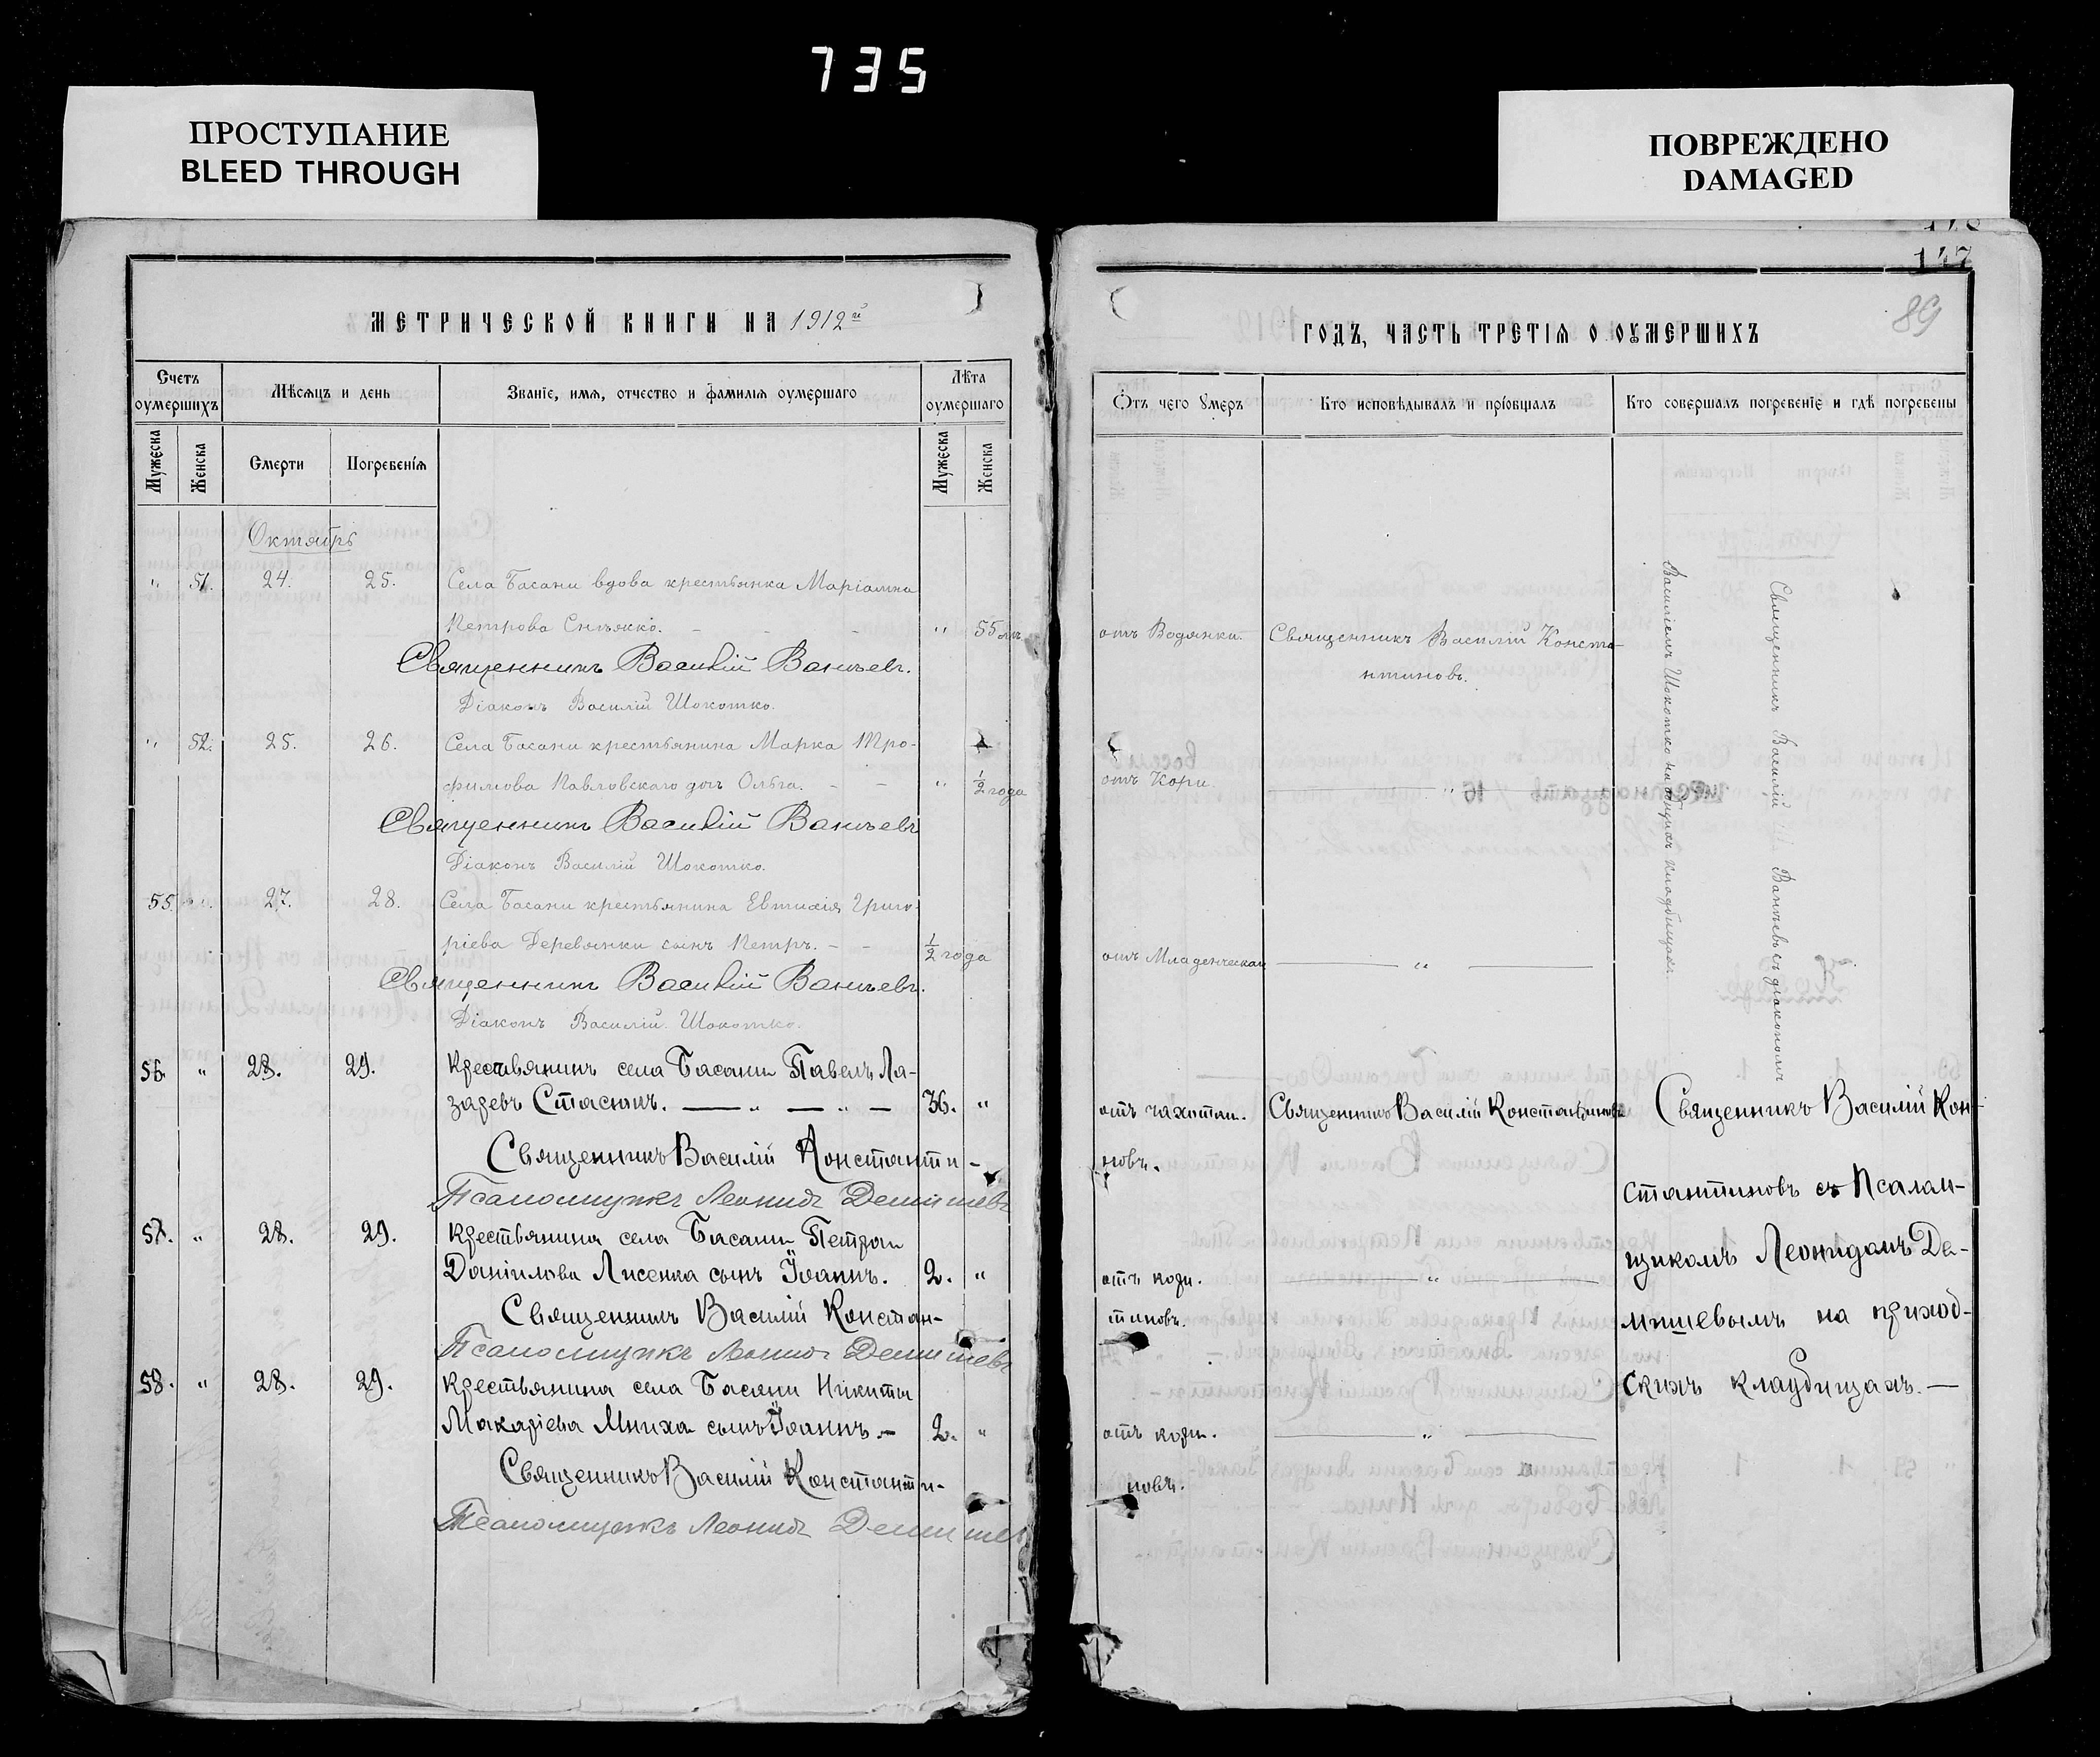 735
ПРОСТУПАНИЕ
BLEED THROUGH
ПОВРЕЖДЕНО
DAMAGED
147
89
МЕТРИЧЕСКОЙ КНИГИ НА 1912й
ГОДЪ, ЧАСТЬ ТРЕТІЯ О ОУМЕРШИХЪ
Счетъ оумершихъ
Мѣсяцъ и день
Званіе, имя, отчество и фамилія оумершаго
Лѣта оумершаго
Отъ чего умеръ
Кто исповѣдывалъ и пріобщалъ
Кто совершалъ погребеніе и гдѣ погребены
Мужеска
Женска
Смерти
Погребенія
Мужеска
Женска
Октябрь
" 51. 24. 25. Села Басани вдова крестьянка Маріамна
Петрова - - - " 55 лѣтъ отъ Водянки. Священникъ Василій Конста-
нтиновъ.
Священникъ Василій Ваньѣевъ.
Діаконъ Василій Шокотко.
" 52. 25. 26. Села Басани крестьянина Марка Тро-
фимова Павловскаго дочь Ольга. - - " 1/2 года отъ Кори. — " —
Священникъ Василій Ваньѣевъ
Діаконъ Василій Шокотко.
55. " 27. 28. Села Басани крестьянина Евтихія Григо-
ріева Деревянки сынъ Петръ. - - 1/2 года отъ Младенческой — " —
Священникъ Василій Ваньѣевъ.
Діаконъ Василій Шокотко.
Священникъ Василій Ваньѣевъ съ діакономъ
Василіемъ Шокотко на общихъ кладбищахъ.
56. " 28. 29. Крестьянинъ села Басани Павелъ Ла-
заревъ Стасюкъ. — " — " — 36. " отъ чахотки. Священникъ Василій Константиновъ Священникъ Василій Кон-
Священникъ Василій Константи-
новъ.
Псаломщикъ Леонидъ Демишевъ
стантиновъ съ Псалом-
57. " 28. 29. Крестьянина села Басани Петра
Даніилова Лисенка сынъ Іоаннъ. 2. " отъ кори. — " —
щикомъ Леонидомъ Де-
Священникъ Василій Констан-
тиновъ.
мишевымъ на приход-
Псаломщикъ Леонидъ Демишевъ
58. " 28. 29. Крестьянина села Басани Никиты
скихъ кладбищахъ. —
Макаріева Мниха сынъ Іоаннъ. — 2. " отъ кори. — " —
Священникъ Василій Константи-
новъ.
Псаломщикъ Леонидъ Демишевъ